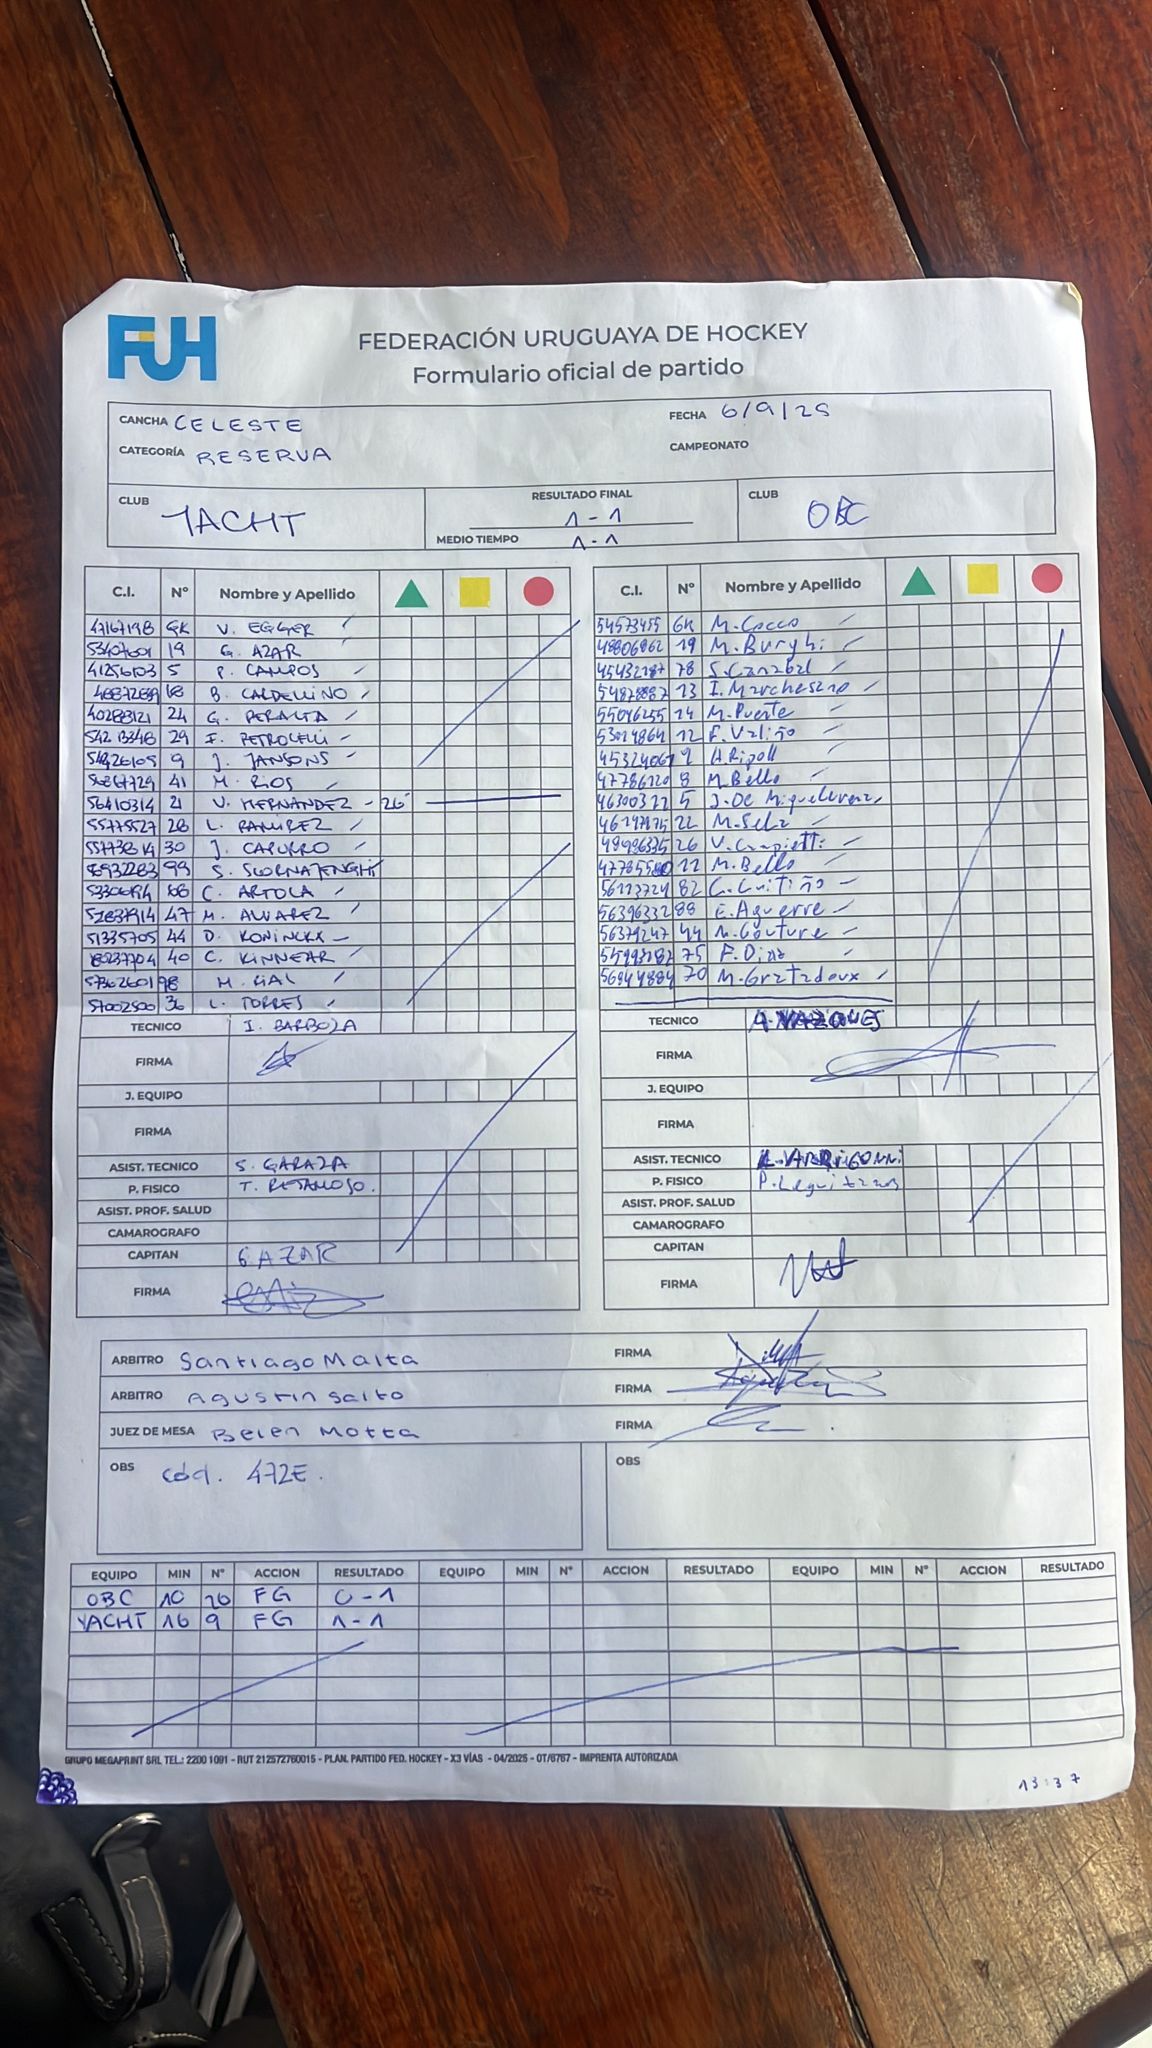 FUH
FEDERACIÓN URUGUAYA DE HOCKEY
Formulario oficial de partido
CANCHA CELESTE FECHA 6/9/25
CATEGORÍA RESERVA CAMPEONATO
CLUB YACHT RESULTADO FINAL 1-1 CLUB OBC
MEDIO TIEMPO 1-1
C.I. Nº Nombre y Apellido
47167198 GK V. EGGER
53407601 19 G. AZAR
41256103 5 P. CAMPOS
B. CALDELLINO
40288121 24 G. PERALTA
29 F. PETROCELLI
9 J. JANSONS
41 M. RIOS
56410314 21 V. HERNÁNDEZ - 26'
55775527 28 L. RAMIREZ
30 J. CAPURRO
99 S.
C. ARTOLA
47 M. ALVAREZ
51335705 44 D. KONINCKX
40 C. KINNEAR
98 M.
57002500 36 L. TORRES
TECNICO I. BARBOZA
FIRMA
J. EQUIPO
FIRMA
ASIST. TECNICO S. GARAZA
P. FISICO T. RETAMOSO.
ASIST. PROF. SALUD
CAMAROGRAFO
CAPITAN G AZAR
FIRMA
C.I. Nº Nombre y Apellido
54573455 GK M. Cocco
48806862 19 M. Burghi
78 S. Canabal
13 I. Marchesano
55046255 14 M. Puente
53014864 12 F. Valiño
A. Ripoll
47786120 8 M. Bello
5 J. De Miquelerena
22 M.
26 V.
M. Bello
82 C. Guitiño
56396332 88 E. Aguerre
56379247 44 M. Couture
75 F. Diaz
70 M. Gratadoux
TECNICO A. VAZQUES
FIRMA
J. EQUIPO
FIRMA
ASIST. TECNICO
P. FISICO
ASIST. PROF. SALUD
CAMAROGRAFO
CAPITAN
FIRMA
ARBITRO Santiago Malta FIRMA
ARBITRO Agustin Saito FIRMA
JUEZ DE MESA Belen Motta FIRMA
OBS cód. 472E. OBS
EQUIPO MIN Nº ACCION RESULTADO EQUIPO MIN Nº ACCION RESULTADO EQUIPO MIN Nº ACCION RESULTADO
OBC 10 26 FG 0-1
YACHT 16 9 FG 1-1
GRUPO MEGAPRINT SRL TEL.: 2200 1091 - RUT 212572760015 - PLAN. PARTIDO FED. HOCKEY - X3 VÍAS - 04/2025 - OT/6767 - IMPRENTA AUTORIZADA
13:37